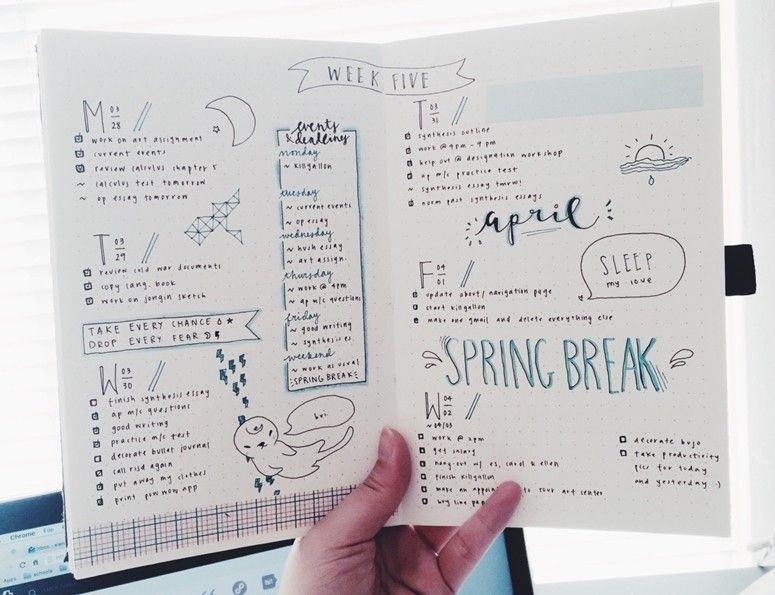 WEEK FIVE
M 03 28
work on art assignment
current events
review calculus chapter 5
~ calculus test tomorrow
~ op essay tomorrow
T 03 29
review cold war documents
copy lang. book
work on jongin sketch
TAKE EVERY CHANCE
DROP EVERY FEAR
W 03 30
finish synthesis essay
ap m/c questions
good writing
practice m/c test
decorate bullet journal
call risd again
put away my clothes
print pow wow app
events
& deadlines
monday
~ killgallon
tuesday
~ current events
~ op essay
wednesday
~ hush essay
~ art assign.
thursday
~ work @ 4pm
~ ap m/c questions
friday
~ good writing
~ synthesis es.
weekend
~ work as usual
SPRING BREAK
bui
T 03 31
synthesis outline
work @ 4pm - 9 pm
help out @ designation workshop
ap m/c practice test
~ synthesis essay tmrw!
norm past synthesis essays
april
F 04 01
update about/navigation page
start killgallon
make one gmail and delete everything else
SLEEP
my love
SPRING BREAK
W 04 02
~ 04/03
work @ 2pm
get salary
hang-out w/ es, carol & ellen
finish killgallon
make an to tour art center
buy line
decorate bujo
take productivity
pics for today
and yesterday :)
Chrome File
Apps schools